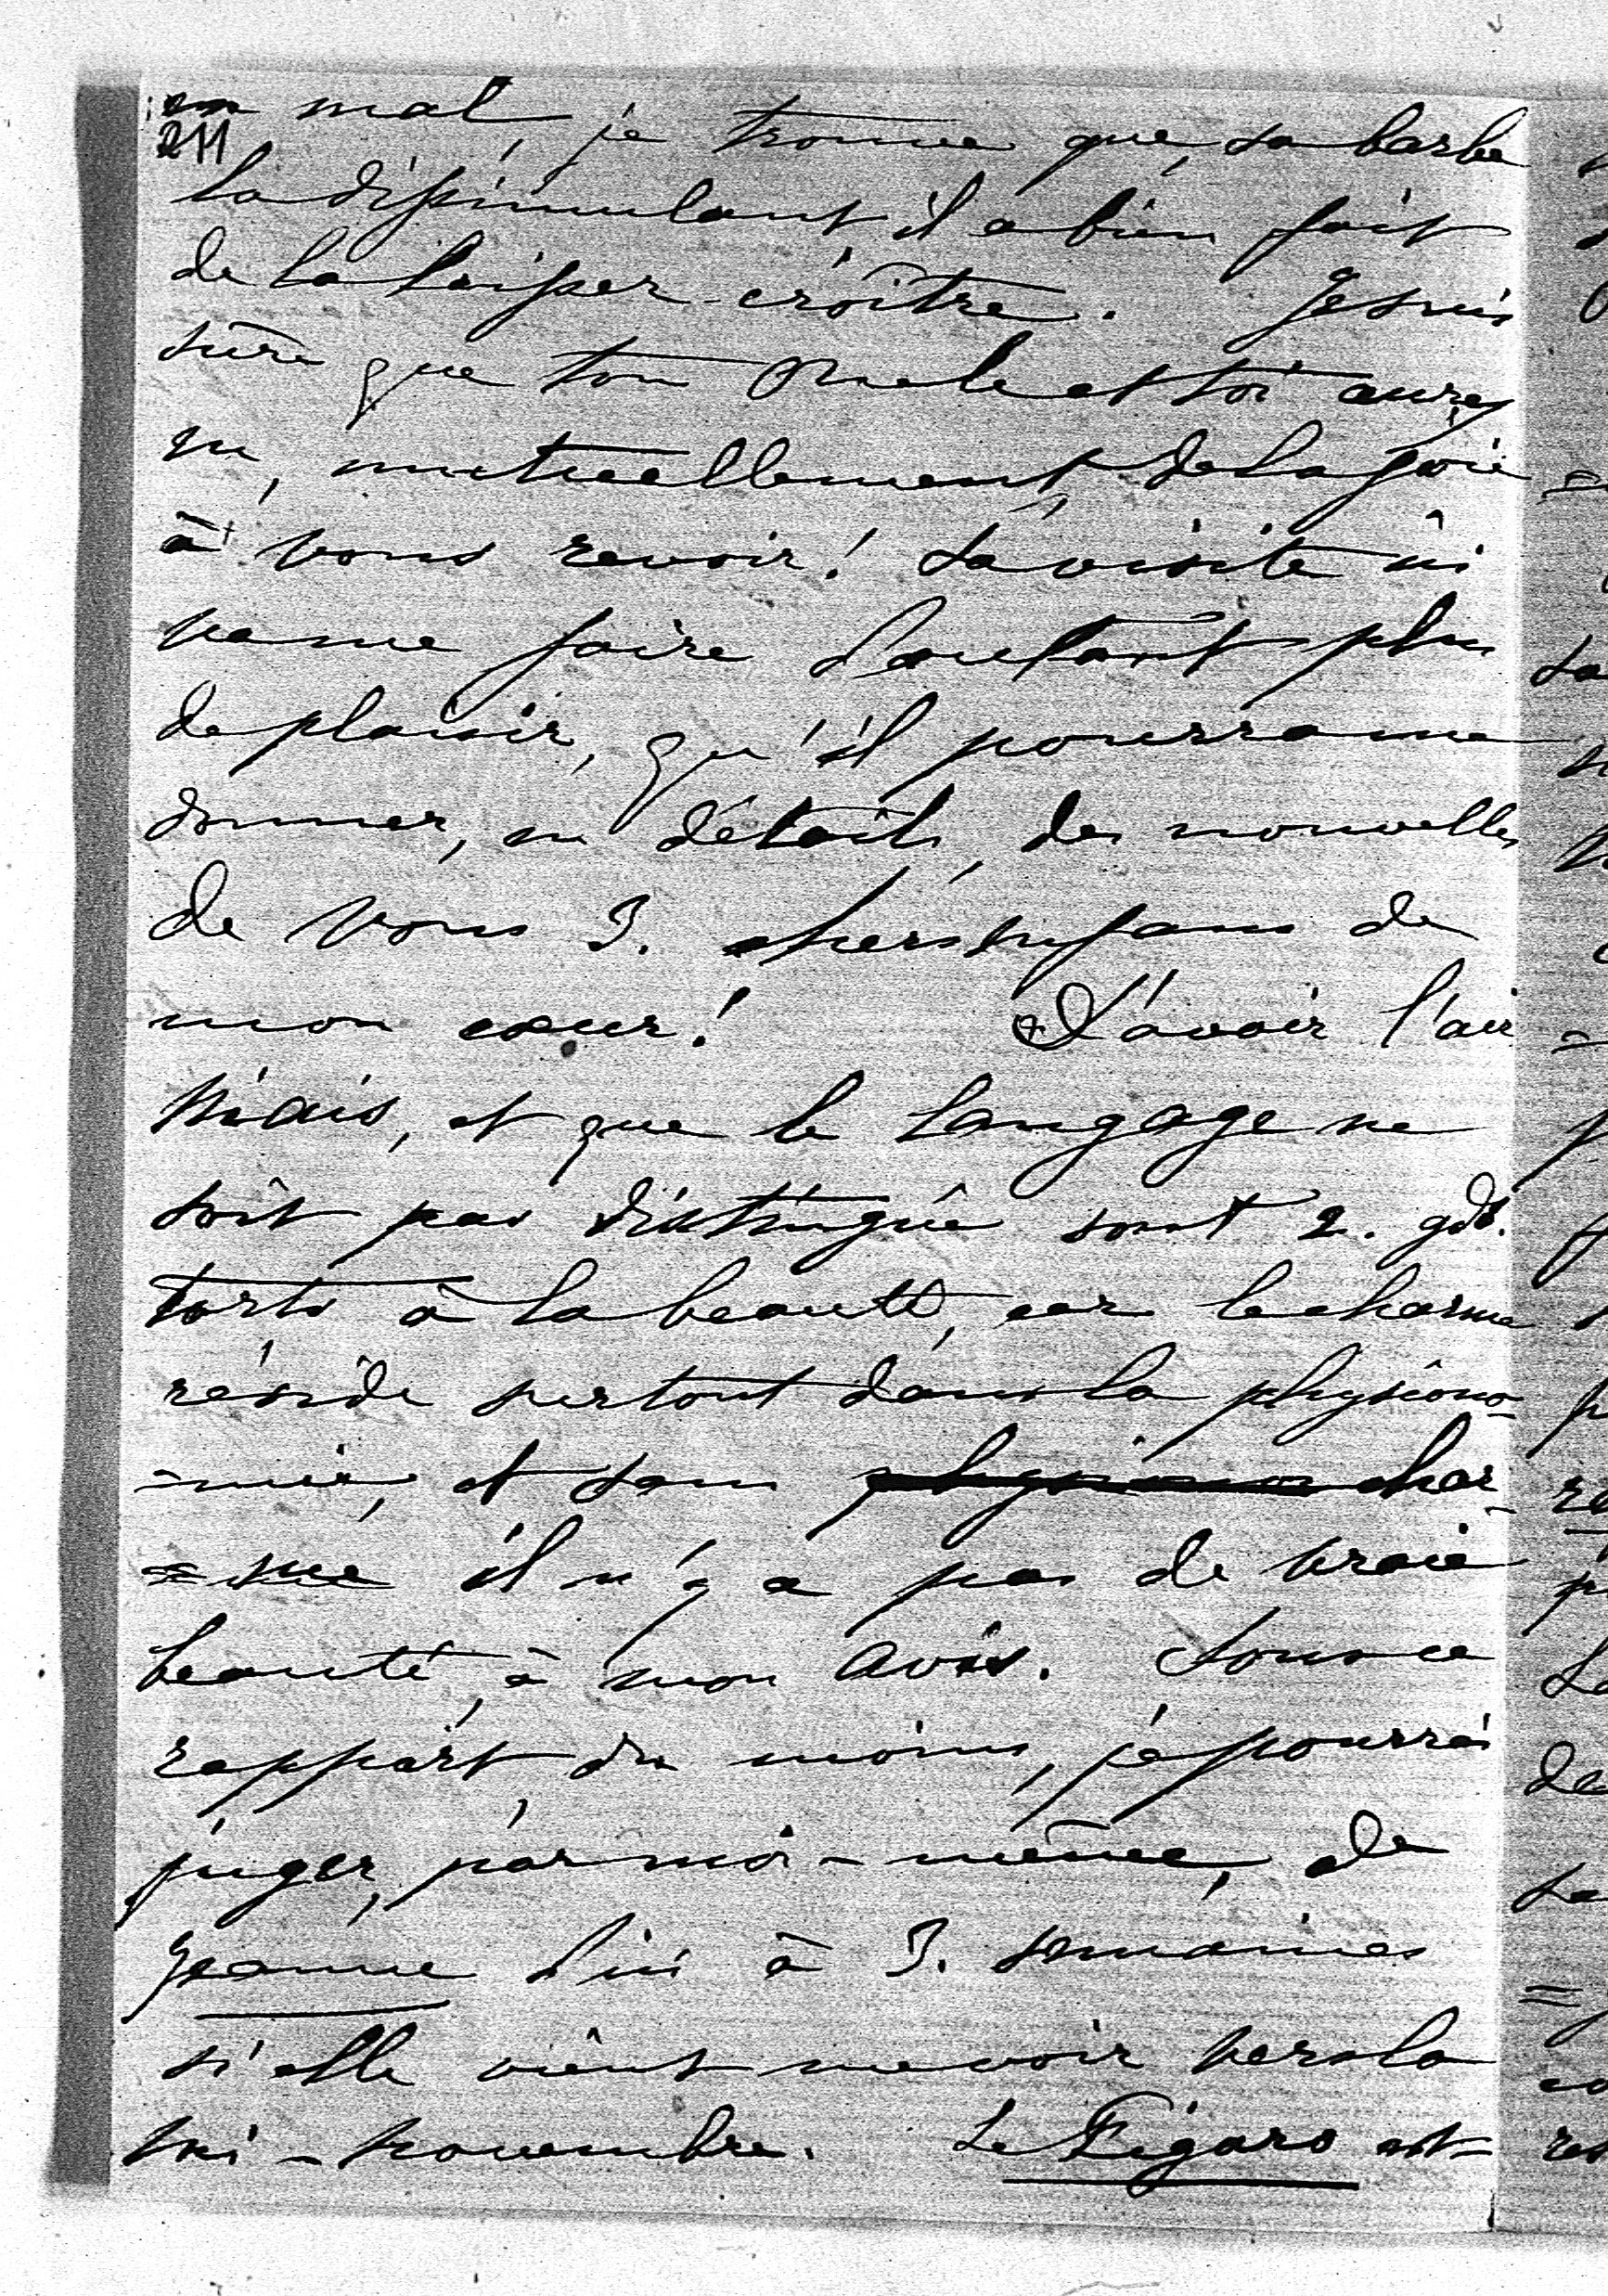 en mal, je trouve que, sa barbe
211
la dissimulant, il a bien fait
de la laisser croître. Je suis
sûre que ton Oncle et toi aurez
eu, mutuellement, de la joie
à vous revoir! Sa visite ici
va me faire d'autant plus
de plaisir, qu'il pourra me
donner, en détails, des nouvelles
de vous 3. chers enfans de
mon cœur! D'avoir l'air
niais, et que le langage ne
soit pas distingué sont 2. gds.
torts à la beauté, car le charme
réside surtout dans la physiono-
-mie, et sans physiono char-
=me il n'y a pas de vraie
beauté, à mon avis. Sous ce
rapport du moins, je pourrai
juger, par moi-même, de
Jeanne d'ici à 3. semaines
si elle vient me voir vers la
mi-novembre. Le Figaro est